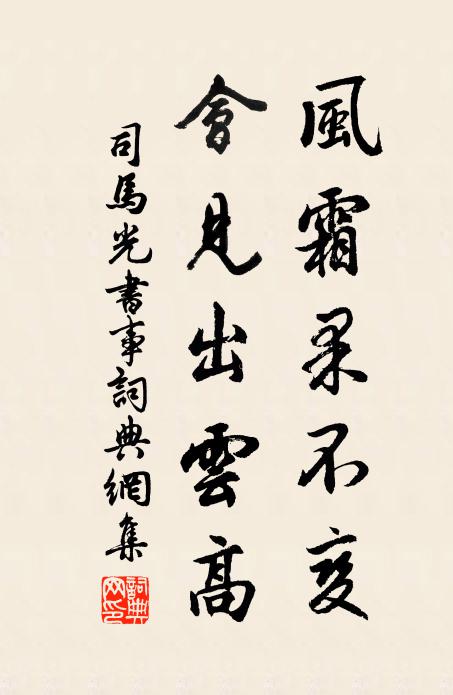 風霜果不變
會見出雲高
司馬光書事詞典網集
詞典网印